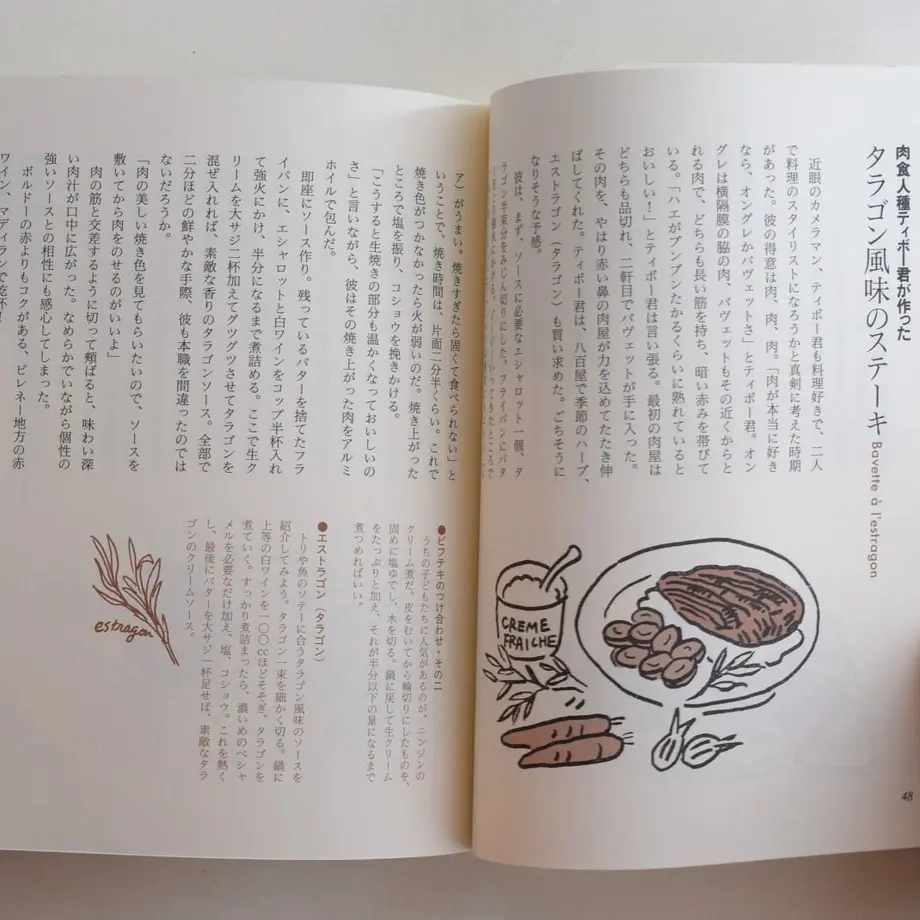 肉食人種ティボー君が作った
タラゴン風味のステーキ
Bavette à l'estragon
近眼のカメラマン、ティボー君も料理好きで、二人
で料理のスタイリストになろうかと真剣に考えた時期
があった。彼の得意は、肉、肉。「肉が本当に好き
なら、オングレかバヴェットさ」とティボー君。オン
グレは横隔膜の脇の肉、バヴェットもその近くからと
れる肉で、どちらも長い筋を持ち、暗い赤みを帯びて
いる。「ハエがブンブンたかるくらいに熟れていると
おいしい!」とティボー君は言い張る。最初の肉屋は
どちらも品切れ、二軒目でバヴェットが手に入った。
その肉を、やはり赤い鼻の肉屋が力を込めてたたき伸
ばしてくれた。ティボー君は、八百屋で季節のハーブ、
エストラゴン(タラゴン)も買い求めた。ごちそうに
なりそうな予感。
彼は、まず、ソースに必要なエシャロット一個、タ
ラゴン半束分をみじん切りにした。フライパンにバタ
CREME
FRAICHE
48
ア)がうまい。焼きすぎたら固くて食べられない」と
いうことで、焼き時間は、片面二分半くらい。これで
焼き色がつかなかったら火が弱いのだ。焼き上がった
ところで塩を振り、コショウを挽きかける。
「こうすると生焼きの部分も温かくなっておいしいの
さ」と言いながら、彼はその焼き上がった肉をアルミ
ホイルで包んだ。
即座にソース作り。残っているバターを捨てたフラ
イパンに、エシャロットと白ワインをコップ半杯入れ
て強火にかけ、半分になるまで煮詰める。ここで生ク
リームを大サジ二杯加えてグツグツさせてタラゴンを
混ぜ入れれば、素敵な香りのタラゴンソース。全部で
二分ほどの鮮やかな手際、彼も本職を間違ったのでは
ないだろうか。
「肉の美しい焼き色を見てもらいたいので、ソースを
敷いてから肉をのせるのがいいよ」
肉の筋と交差するように切って頬ばると、味わい深
い肉汁が口中に広がった。なめらかでいながら個性の
強いソースとの相性にも感心してしまった。
ボルドーの赤よりもコクがある、ピレネー地方の赤
ワイン、マディランで乾杯!
●ビフテキのつけ合わせ・その二
うちの子どもたちに人気があるのが、ニンジンの
クリーム煮だ。皮をむいてから輪切りにしたものを、
固めに塩ゆでし、水を切る。鍋に戻して生クリーム
をたっぷりと加え、それが半分以下の量になるまで
煮つめればいい。
●エストラゴン(タラゴン)
トリや魚のソテーに合うタラゴン風味のソースを
紹介してみよう。タラゴン一束を細かく切る。鍋に
上等の白ワインを一〇〇ccほどそそぎ、タラゴンを
煮ていく。すっかり煮詰まったら、濃いめのベシャ
メルを必要なだけ加え、塩、コショウ。これを熱く
し、最後にバターを大サジ一杯足せば、素敵なタラ
ゴンのクリームソース。
estragon